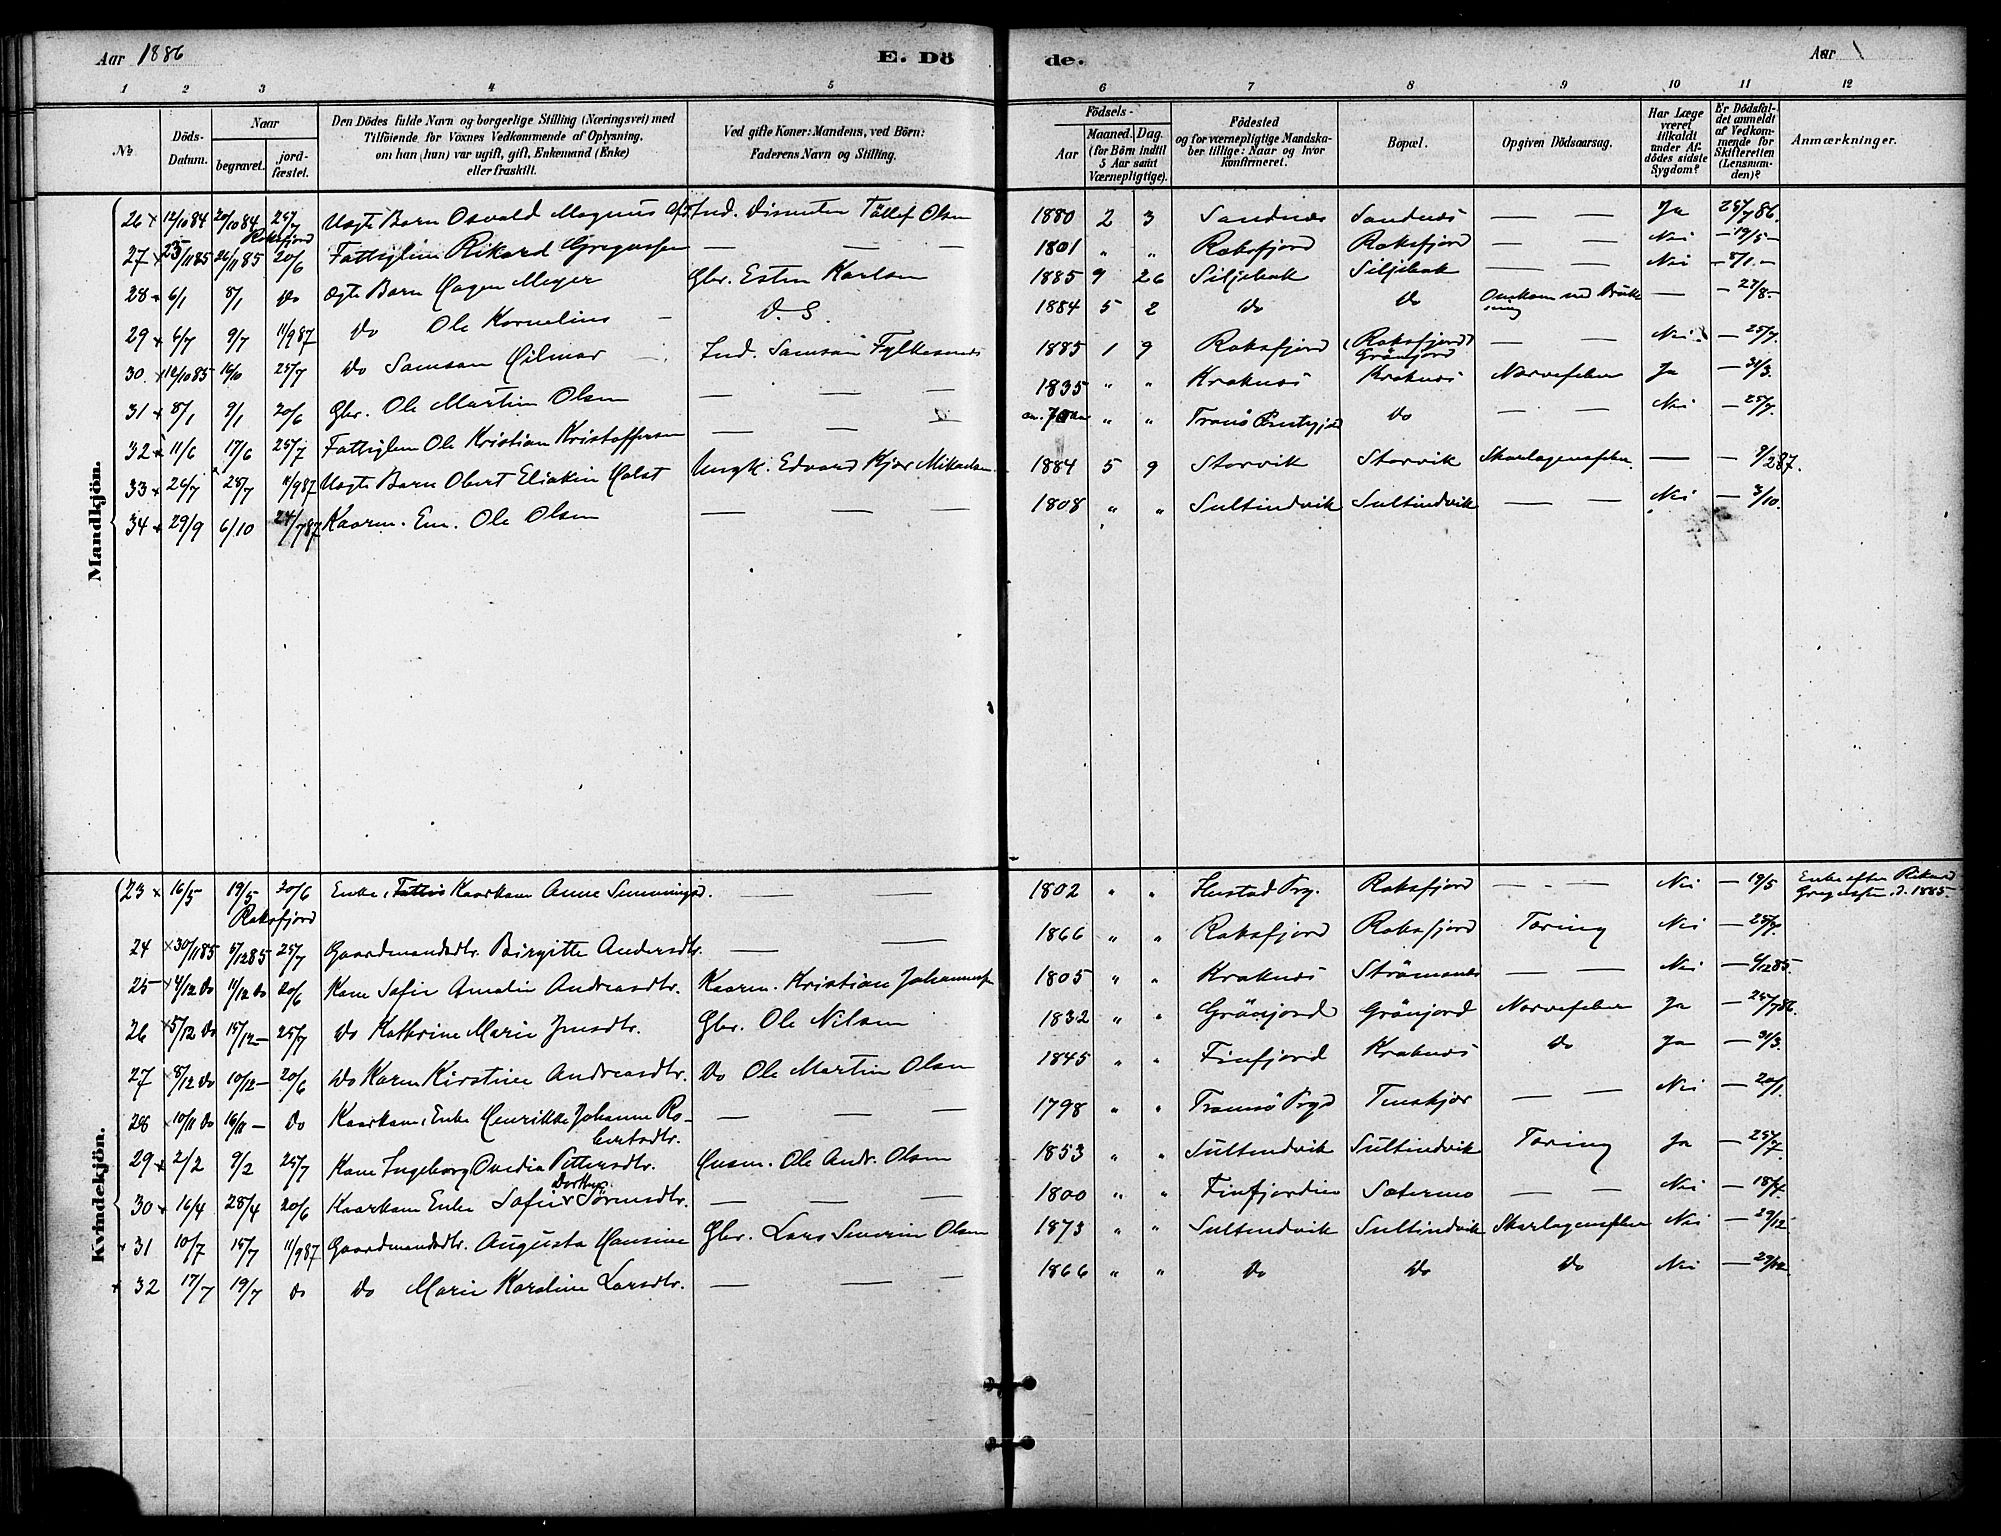 Aar 1886
E. Dö
de.
Aar
1 2 3 4 5 6 7 8 9 10 11 12
№
Döds-Datum.
Naar
begravet.
jord-fæstet.
Den Dödes fulde Navn og borgerlige Stilling (Næringsvei) med
Tilföiende for Voxnes Vedkommende af Oplysning,
om han (hun) var ugift, gift, Enkemand (Enke)
eller fraskilt.
Ved gifte Koner: Mandens, ved Börn:
Faderens Navn og Stilling.
Födsels-
Aar
Maaned. Dag.
(for Börn indtil
5 Aar samt
Værnepligtige).
Födested
og for værnepligtige Mandska-
ber tillige: Naar og hvor
konfirmeret.
Bopæl.
Opgiven Dödsaarsag.
Har Læge
været
tilkaldt
under Af-
dödes sidste
Sygdom?
Er Dödsfal-
det anmeldt
af Vedkom-
mende for
Skifteretten
(Lensman-
den)?
Anmærkninger.
Mandkjön.
26 12/10 84 20/10 84 25/7 Uægte Barn Osvald Magnus Ind. Tollef Olsen 1880 2 3 Sandnæs Sandnæs — — Ja 25/7 86.
Roksfjord
27 23/11 85 26/11 85 20/6 Fattiglem Rikard Gregussen — — — 1801 " " Roksfjord Roksfjord — — Nei — 19/5 —
28 6/1 8/1 do Ægte Barn Hagen Meyer Gbr. Esten Karlsen 1885 9 26 Siljebak Siljebak — — Nei — 8/1 —
29 6/7 9/7 11/9 87 do Ole Kornelius — D. S. 1884 5 2 do do Omkom ved — — 27/8 —
30 12/10 85 19/10 25/7 do Samson Hilmar — Ind. Samson Fylkesnes 1885 1 9 Roksfjord (Roksfjord) Grönjord — — Nei — 25/7.
31 8/1 9/1 20/6 Gbr. Ole Martin Olsen — — — 1835 " " Kraknæs Kraknæs Nervefeber Ja — 31/3.
32 11/6 17/6 25/7 Fattiglem Ole Kristian Kristoffersen — — — " " Tromsö do — — Nei — 25/7.
33 26/7 28/7 11/9 87 Uægte Barn Obert Eliakin Holst Ungk. Edvard Kjær Mikaelsen 1884 5 9 Storvik Storvik Skarlagensfeber — — 9/2 87.
34 29/9 6/10 24/7 87 Kaarm. Em. Ole Olsen — — — 1808 " " Sultindvik Sultindvik — — Nei — 3/10.
Kvindekjön.
23 16/5 19/5 20/6 Enke, Kaarkone Anne — — 1802 " " Hustad Prg. Roksfjord — — Nei — 19/5 Enke efter Rikard
Roksfjord
Gregussen, d. 1885
24 30/11 85 5/12 85 25/7 Gaardmandsdtr. Birgitte Andersdtr. — — 1866 " " Roksfjord Roksfjord Tæring Nei — 25/7.
25 4/12 do 11/12 do 20/6 Kone Sofie Amalie Andreasdtr. Kaarm. Kristian Johannesen 1805 " " Kraknæs Strömsnes — — Nei — 4/12 85.
26 5/12 do 15/12 — 25/7 do Kathrine Marie Jensdtr. Gbr. Ole Nilsen 1832 " " Grönjord Grönjord Nervefeber Ja — 25/7 86.
27 8/12 do 10/12 — 20/6 do Karen Kirstine Andreasdtr. do Ole Martin Olsen 1845 " " Finfjord Kraknæs do Ja — 31/3.
28 10/11 do 16/11 — do Kaarkone, Enke Henrikke Johanne Ro-
bertsdtr. — — — 1798 " " Tromsö Prgd Tenskjær — — Nei — 20/1.
29 2/2 9/2 25/7 Kone Ingeborg Ovedia Pettersdtr. Husm. Ole Andr. Olsen 1853 " " Sultindvik Sultindvik Tæring Ja — 25/7.
30 16/4 28/4 20/6 Kaarkone Enke Sofie Dorthea Sörensdtr. — — — 1800 " " Finfjordnes Sætermo — — Nei — 18/4.
31 10/7 15/7 11/9 87 Gaardmandsdtr. Augusta Hansine Gbr. Lars Severin Olsen 1873 " " Sultindvik Sultindvik Skarlagensfeber Nei — 29/12.
32 17/7 19/7 do do Marie Karoline Larsdtr. — — — 1866 " " do do do Nei — 29/12.